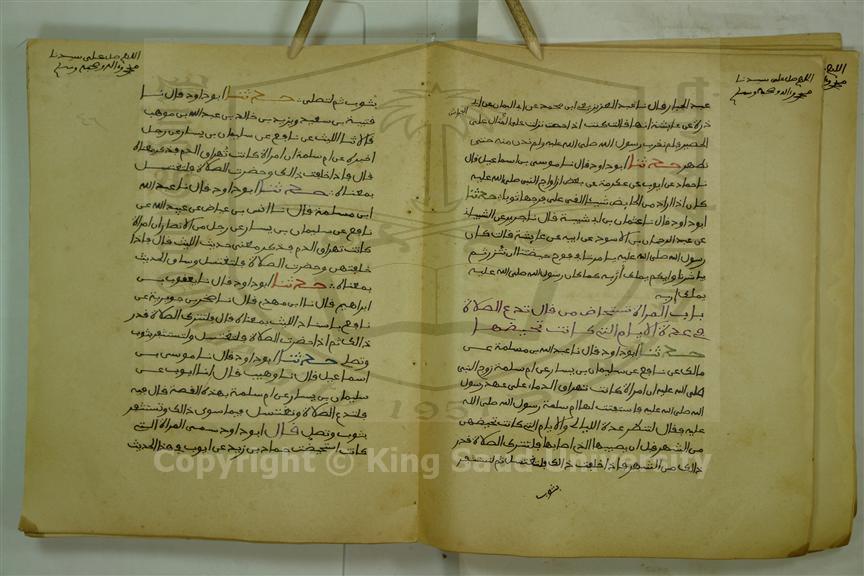 اللهم صل على سيدنا
محمد واله وصحبه وسلم
عبد الجبار قال نا عبد العزيز يعني ابن محمد عن ابي اليمان عن ام
ذرة عن عايشة انها قالت كنت اذا حضت نزلت عن المثال على
الحصير فلم نقرب رسول الله صلى الله عليه ولم ندن منه حتى
نطهر حدثنا ابو داود قال نا موسى بن اسماعيل قال
نا حماد عن ايوب عن عكرمة عن بعض ازواج النبي صلى الله عليه
كان اذا اراد من الحايض شيئا القى على فرجها ثوبا حدثنا
ابو داود قال نا عثمان بن ابي شيبة قال نا جرير عن الشيباني
عن عبد الرحمان بن الاسود عن ابيه عن عايشة قالت كان
رسول الله صلى الله عليه يامرنا في فوح حيضتنا ان نتزر ثم
يباشرنا وايكم يملك اربه كما كان رسول الله صلى الله عليه
يملك اربه
باب المراة تستحاض من قال تدع الصلاة
في عدة الايام التي كانت تحيضها
حدثنا ابو داود قال نا عبد الله بن مسلمة عن
مالك عن نافع عن سليمان بن يسار عن ام سلمة زوج النبي
صلى الله عليه ان امراة كانت تهراق الدماء على عهد رسول
الله صلى الله عليه فاستفتت لها ام سلمة رسول الله صلى الله
عليه فقال لتنظر عدة الليالي والايام التي كانت تحيضهن
من الشهر قبل ان يصيبها الذي اصابها فلتترك الصلاة قدر
ذالك من الشهر فاذا خلفت ذالك فلتغتسل ثم لتستثفر
بثوب
اللهم صل على سيدنا
محمد واله وصحبه وسلم
بثوب ثم لتصلي حدثنا ابو داود قال نا
قتيبة بن سعيد ويزيد بن خالد بن عبد الله بن موهب
قالا نا الليث عن نافع عن سليمان بن يسار عن رجل
اخبره عن ام سلمة ان امراة كانت تهراق الدم فذكر معناه
قال فاذا خلفت ذالك وحضرت الصلاة فلتغتسل
بمعناه حدثنا ابو داود قال نا عبد الله
ابن مسلمة قال نا انس بن عياض عن عبيد الله عن
نافع عن سليمان بن يسار عن رجل من الانصار ان امراة
كانت تهراق الدم فذكر معنى حديث الليث قال فاذا
خلفتهن وحضرت الصلاة فلتغتسل وساق الحديث
بمعناه حدثنا ابو داود قال نا يعقوب بن
ابراهيم قال نا ابن مهدي قال نا صخر بن جويرية عن
نافع باسناد الليث بمعناه قال فلتترك الصلاة قدر
ذالك ثم اذا حضرت الصلاة فلتغتسل ولتستثفر بثوب
وتصلي حدثنا ابو داود قال نا موسى بن
اسماعيل قال نا وهيب قال نا ايوب عن
سليمان بن يسار عن ام سلمة بهذه القصة قال فيه
فلتدع الصلاة وتغتسل فيما سوى ذالك وتستثفر
بثوب وتصلي قال ابو داود سمى المراة التي
كانت استحيضت حماد بن زيد عن ايوب في هذا الحديث
Copyright © King Saud University
1957